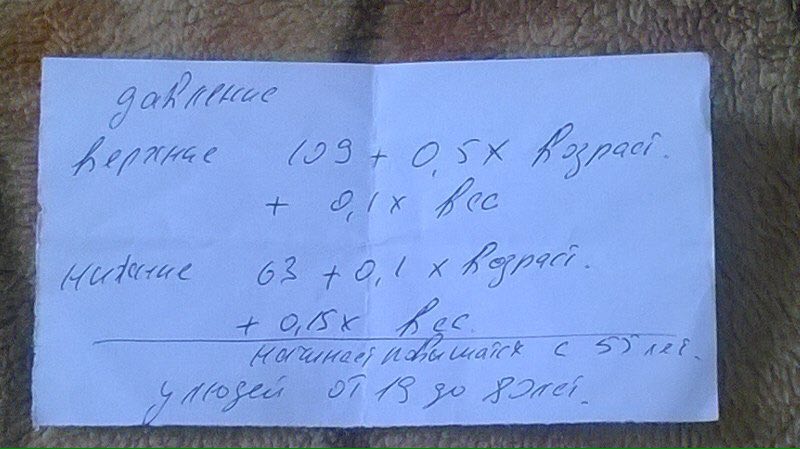 давление
верхние 109 + 0,5 х возраст.
+ 0,1 х вес
нижние 63 + 0,1 х возраст.
+ 0,15 х вес.
начинает повышатся с 55 лет.
у людей от 19 до 80 лет.